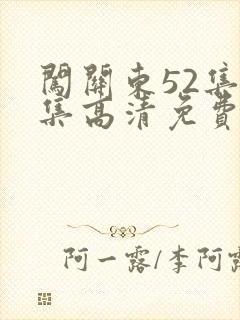 闖關東52集
集高清免費
阿一露/李阿露